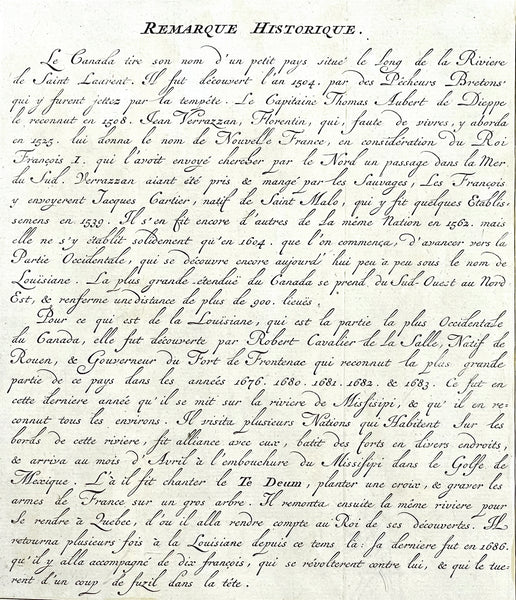 REMARQUE HISTORIQUE.
Le Canada tire son nom d'un petit pays situé le long de la Riviere
de Saint Laurent. Il fut découvert l'an 1504. par des Pêcheurs Bretons
qui y furent jettez par la tempête. Le Capitaine Thomas Aubert de Dieppe
le reconnut en 1508. Jean Verrazzan, Florentin, qui, faute de vivres, y aborda
en 1525. lui donna le nom de Nouvelle France, en considération du Roi
François I. qui l'avoit envoyé chercher par le Nord un passage dans la Mer
du Sud. Verrazzan aiant été pris & mangé par les Sauvages, Les François
y envoyerent Jacques Cartier, natif de Saint Malo, qui y fit quelques Etablis-
semens en 1539. Il s'en fit encore d'autres de La même Nation en 1562. mais
elle ne s'y établit solidement qu'en 1604. que l'on commença, d'avancer vers la
Partie Occidentale, qui se découvre encore aujourd'hui peu à peu sous le nom de
Louïsiane. La plus grande étenduë du Canada se prend du Sud-Ouest au Nord
Est, & renferme un distance de plus de 900. lieuës.
Pour ce qui est de la Louïsiane, qui est la partie la plus Occidentale
du Canada, elle fut découverte par Robert Cavalier de La Salle, Natif de
Rouen, & Gouverneur du Fort de Frontenac qui reconnut la plas grande
partie de ce pays dans les années 1676. 1680. 1681. 1682. & 1683. Ce fut en
cette derniere année qu'il se mit sur la riviere de Missisipi, & qu'il en re-
connut tous les environs. Il visita plusieurs Nations qui Habitent Sur les
bords de cette riviere, fit alliance avec eux, batit des forts en divers endroits,
& arriva au mois d'Avril à l'embouchure du Missisipi dans le Golfe de
Mexique. L'à il fit chanter le Te Deum, planter une croix, & graver les
armes de France sur un gros arbre. Il remonta ensuite la même riviere pour
se rendre à Quebec, d'ou il alla rendre compte au Roi de ses découvertes. Il
retourna plusieurs fois à la Louisiane depuis ce tems là: sa derniere fut en 1686.
qu'il y alla accompagné de dix françois, qui se révolterent contre lui, & qui le tue-
rent d'un coup de fuzil dans la tête.